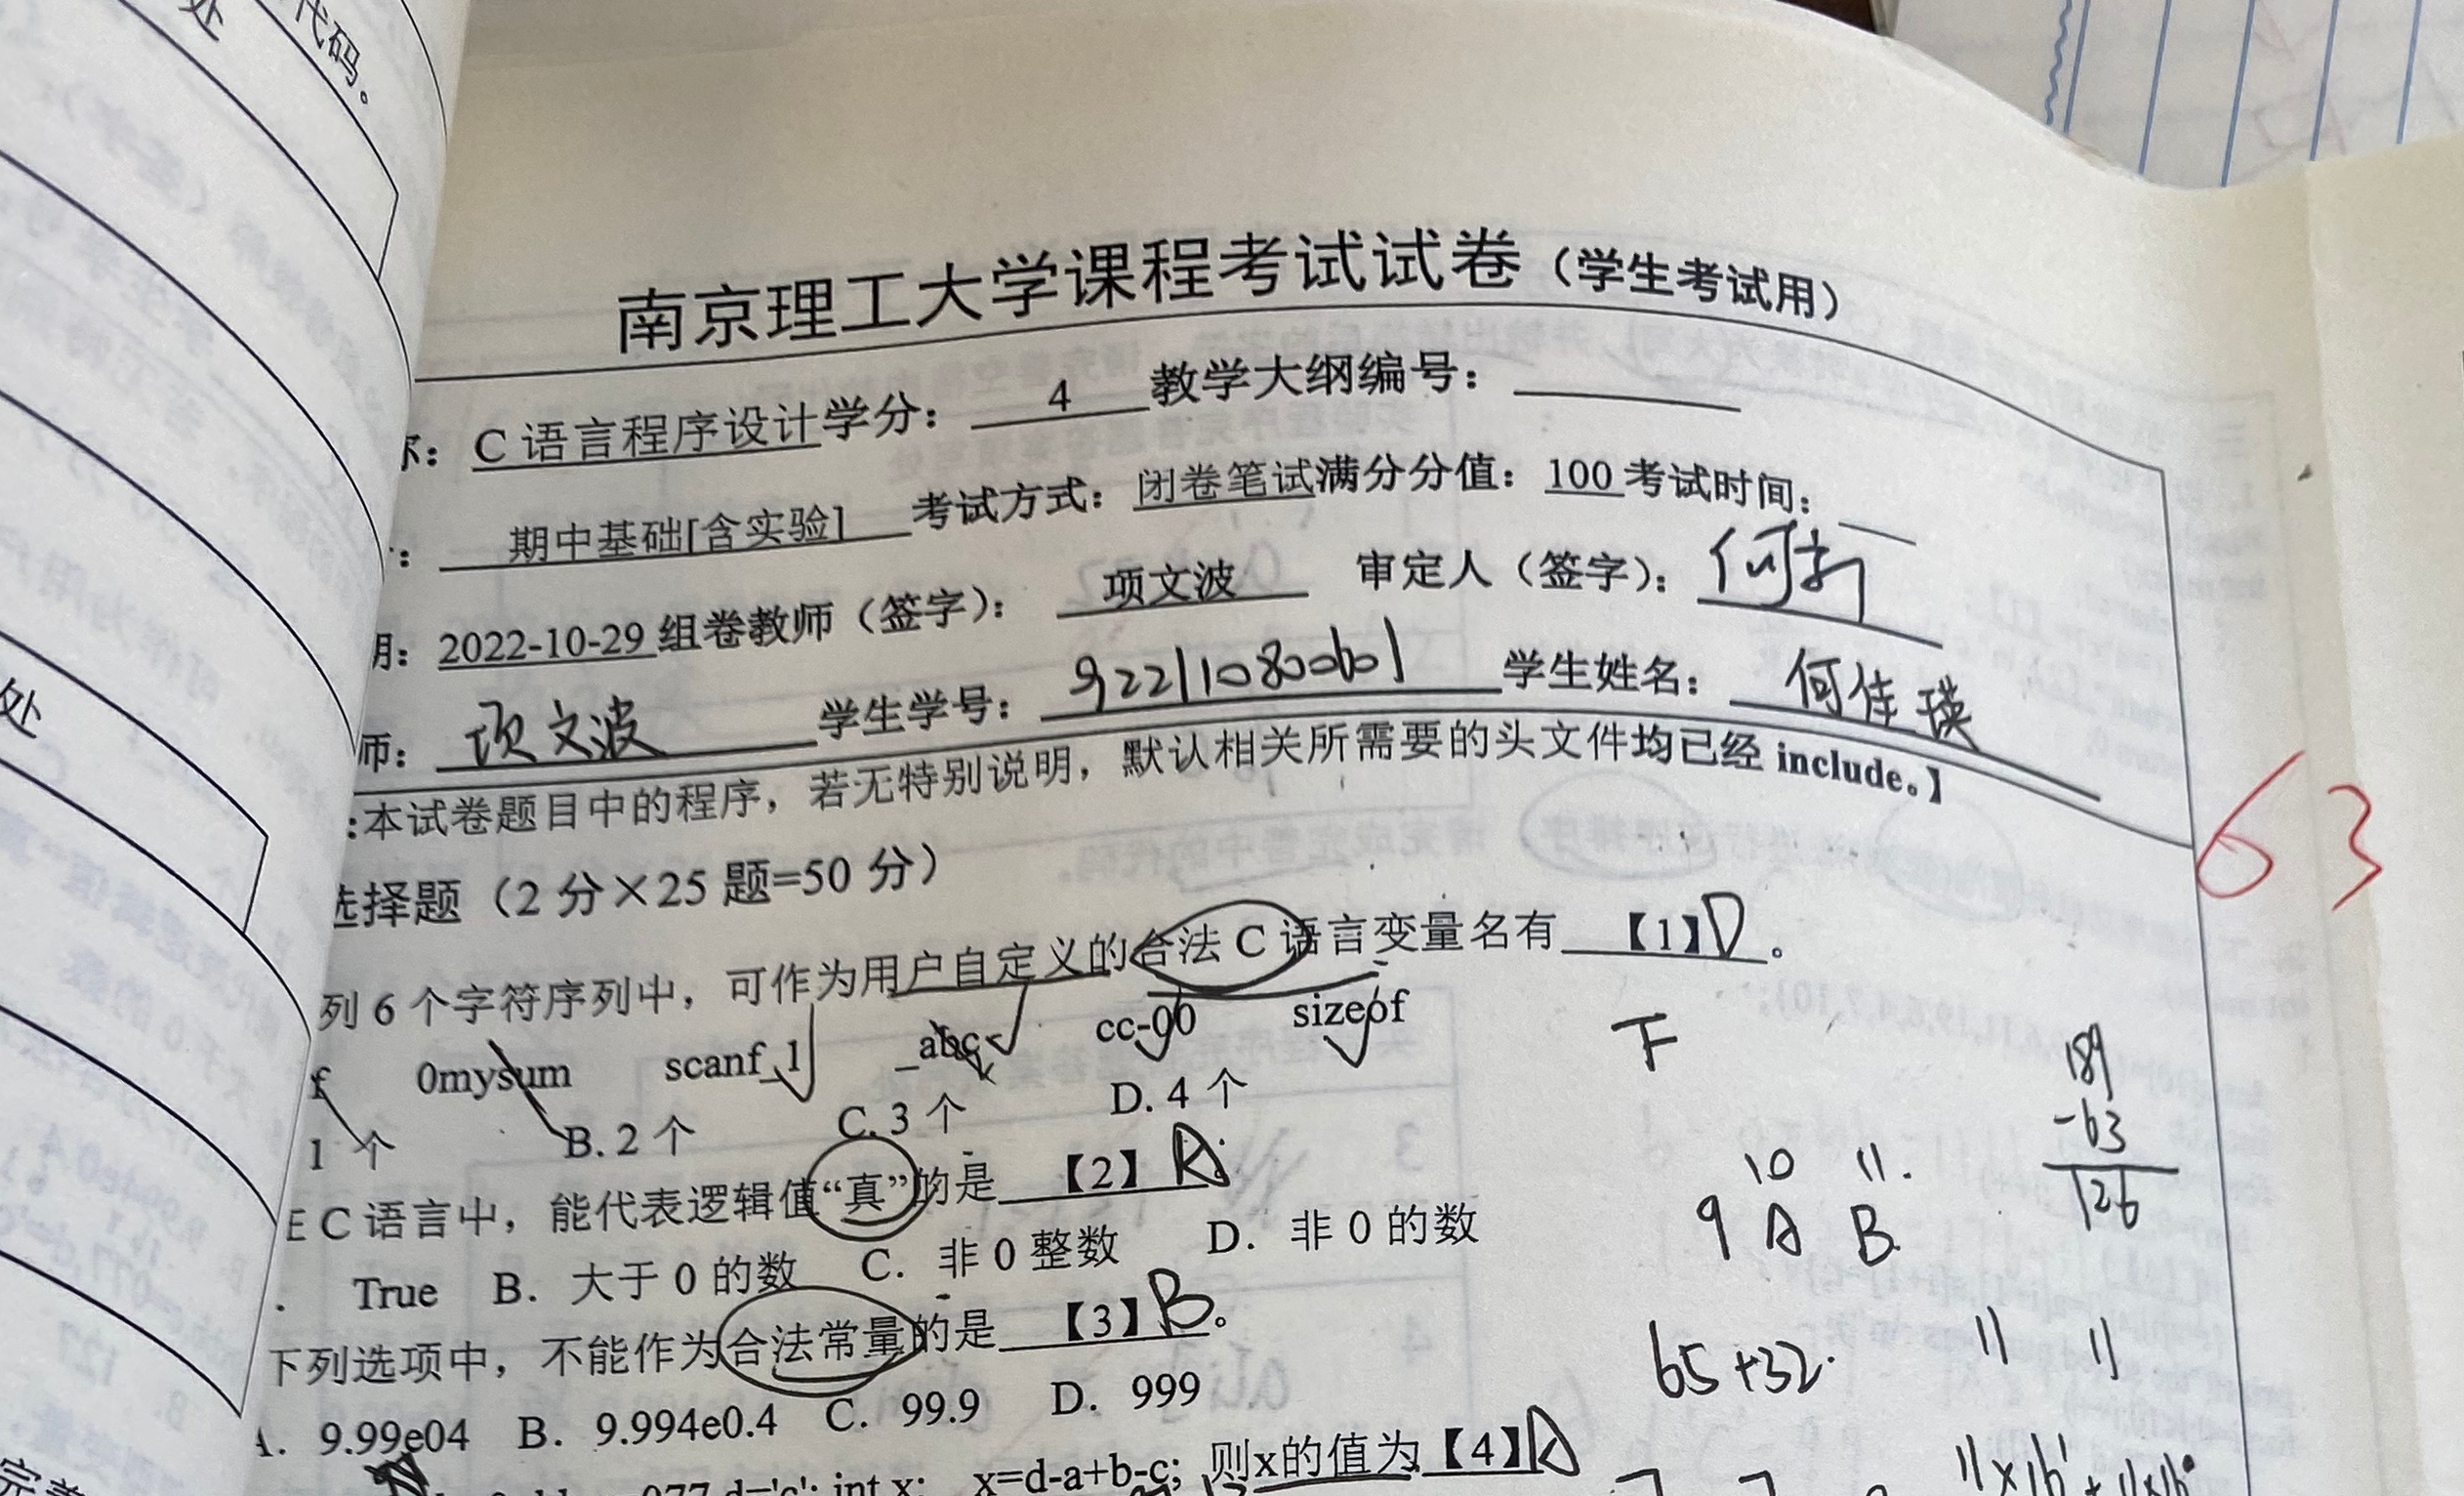 代码。
处
南京理工大学课程考试试卷（学生考试用）
称： C 语言程序设计学分： 4 教学大纲编号：
： 期中基础[含实验] 考试方式：闭卷笔试满分分值：100 考试时间：
期：2022-10-29 组卷教师（签字）： 项文波 审定人（签字）：何新
师： 项文波 学生学号： 922110800601 学生姓名： 何佳瑛
:本试卷题目中的程序，若无特别说明，默认相关所需要的头文件均已经 include。】
63
选择题（2 分×25 题=50 分）
列 6 个字符序列中，可作为用户自定义的合法 C 语言变量名有 【1】D 。
f 0mysum scanf_1 _abc cc-00 sizeof
下
1 个 B. 2 个 C. 3 个 D. 4 个
189
-63
126
在 C 语言中，能代表逻辑值“真”的是 【2】A
10 11.
9 A B
. True B. 大于 0 的数 C. 非 0 整数 D. 非 0 的数
下列选项中，不能作为合法常量的是 【3】B 。
65+32. 11 11
A. 9.99e04 B. 9.994e0.4 C. 99.9 D. 999
077,d='c'; int x; x=d-a+b-c; 则x的值为【4】A
处
完善